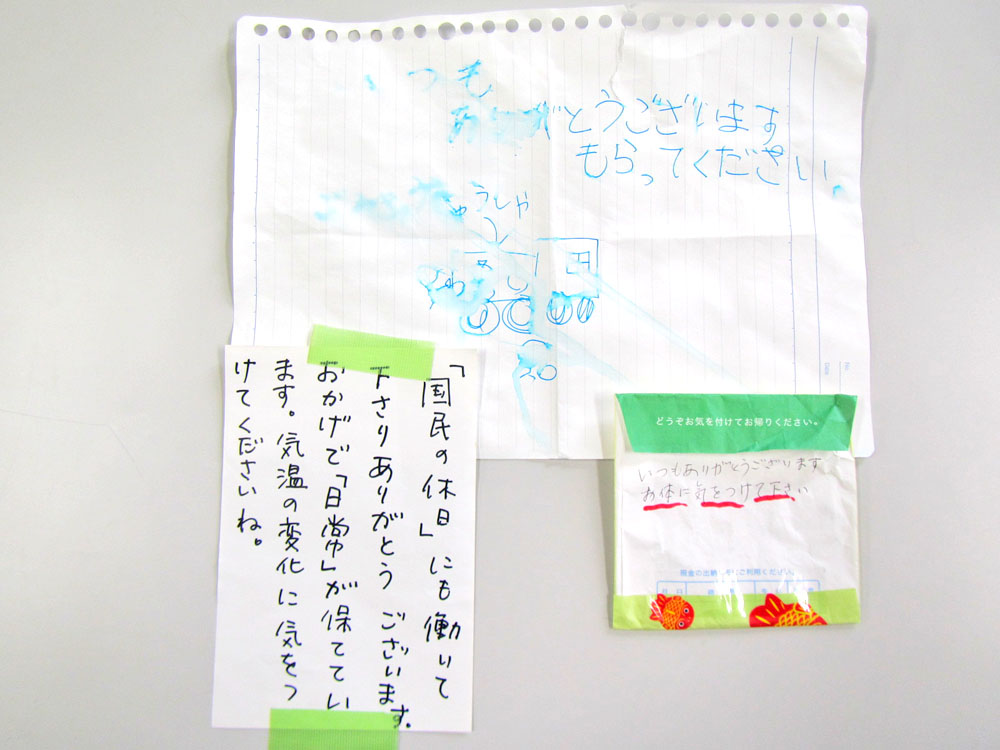 いつも
ありがとうございます
もらってください。
ゅうしゃ
20
「国民の休日」にも働いて
下さりありがとうございます。
おかげで「日常」が保ててい
ます。気温の変化に気をつ
けてくださいね。
どうぞお気を付けてお帰りください。
いつもありがとうございます
お体に気をつけて下さい
No.
Date